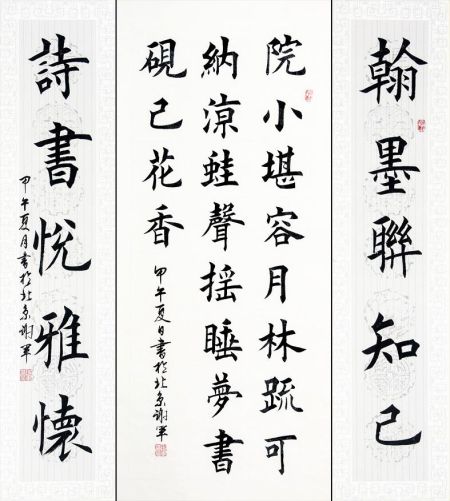 翰墨聯知己
院小堪容月林疏可
納涼蛙聲摇睡夢書
硯己花香
甲午夏日書於北京謝軍
詩書悦雅懷
甲午夏月書於北京謝軍